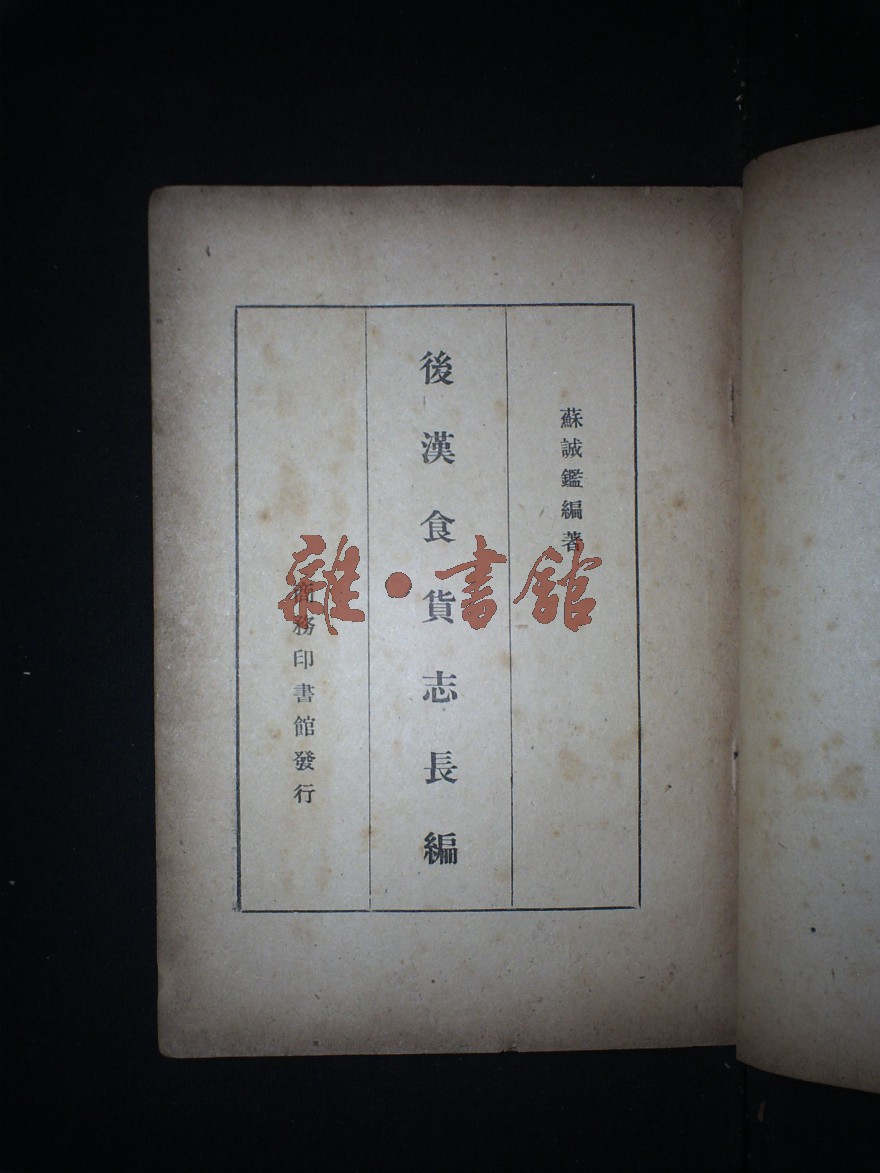 蘇誠鑑編著
後漢食貨志長編
商務印書館發行
雜·書館